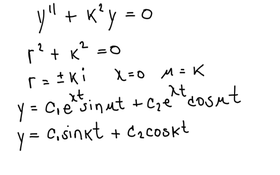 y'' + K² y = 0
r² + K² = 0
r = ± K i   λ = 0   μ = K
y = C₁ e^{λt} sin μt + C₂ e^{λt} cos μt
y = C₁ sin Kt + C₂ cos Kt